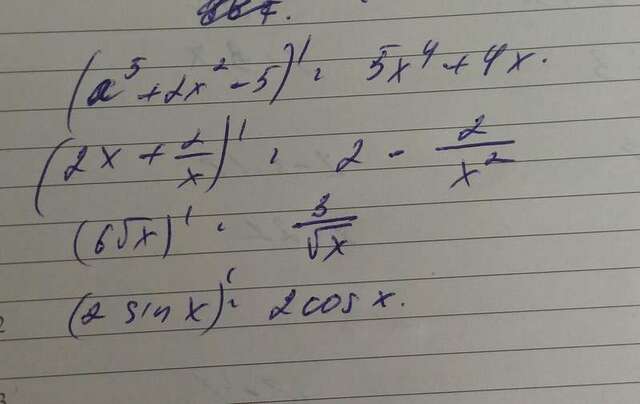 (x⁵ + 2x² - 5)' = 5x⁴ + 4x.
(2x + 2/x)' = 2 - 2/x²
(6√x)' = 3/√x
(2 sin x)' = 2 cos x.